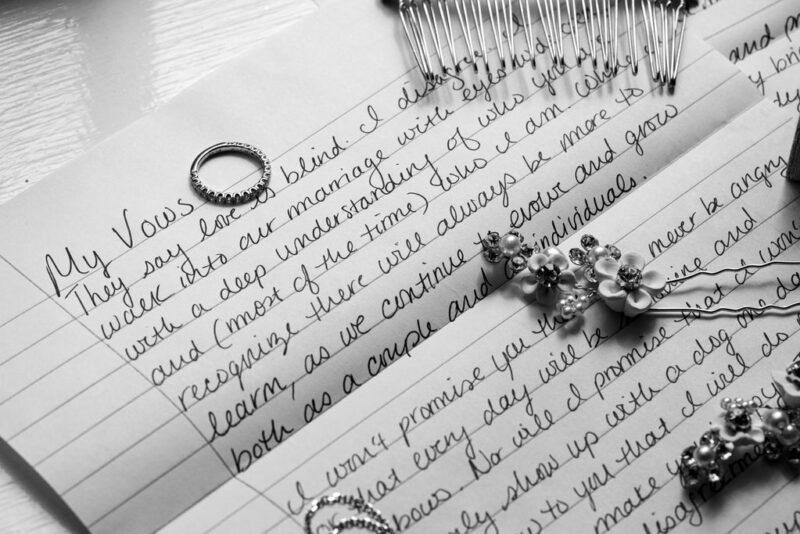 My Vows
They say love is blind. I disagree. I
walk into our marriage with eyes wide
with a deep understanding of who you
and (most of the time) who I am. While
recognize there will always be more to
learn, as we continue to evolve and grow
both as a couple and as individuals.
I won't promise you that never be angry
or that every day will be and
bows. Nor will I promise that I won't
only show up with a dog one day
to you that I will do
make you
and